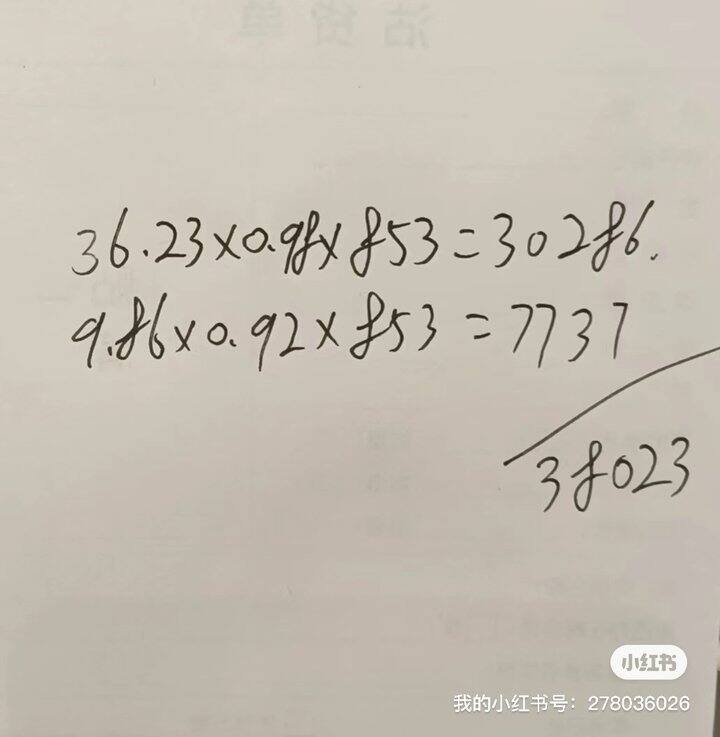 沽货单
36.23×0.98×853=30286.
9.86×0.92×853=7737
38023
小红书
我的小红书号：278036026